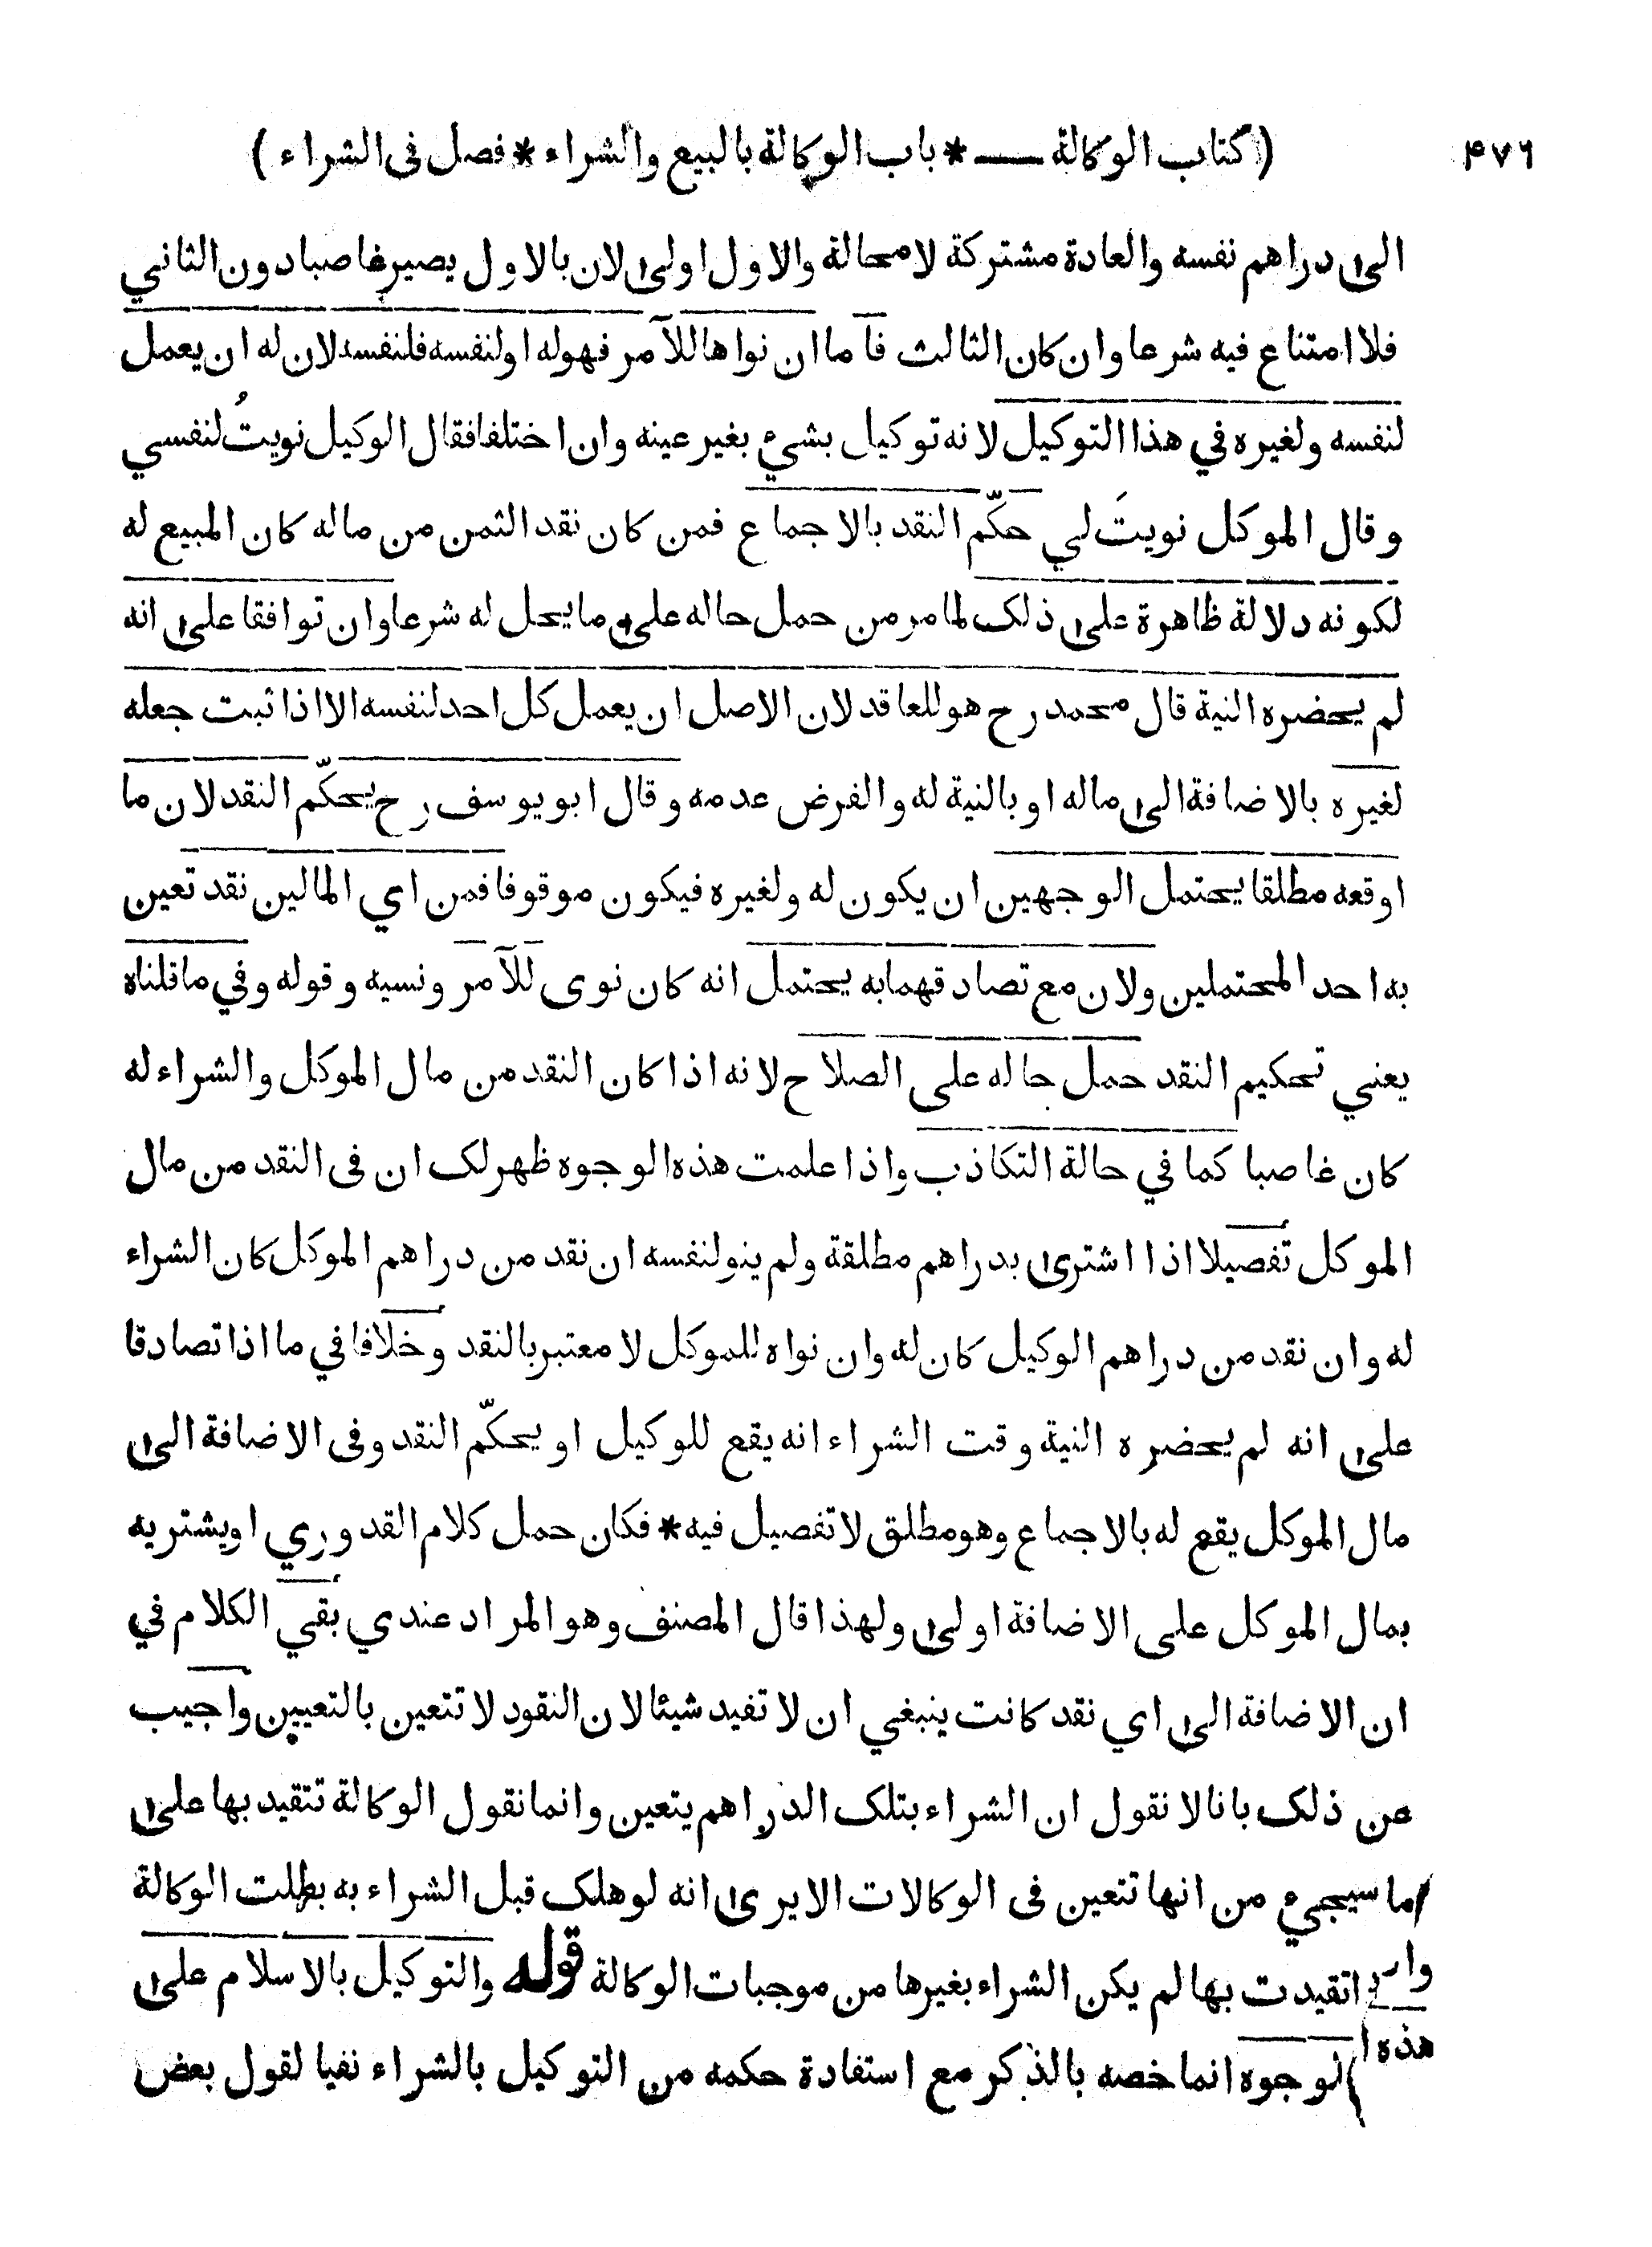 ( كتاب الوكالة — * باب الوكالة بالبيع والشراء * فصل فى الشراء ) ۴۷۶
الى دراهم نفسه والعادة مشتركة لا محالة والاول اولى لان بالاول يصير غاصبا دون الثاني
فلا امتناع فيه شرعا وان كان الثالث فاما ان نواها للآمر فهو له او لنفسه فلنفسه لان له ان يعمل
لنفسه ولغيره في هذا التوكيل لانه توكيل بشيء بغير عينه وان اختلفا فقال الوكيل نويتُ لنفسي
وقال الموكل نويتَ لي حكّم النقد بالاجماع فمن كان نقد الثمن من ماله كان المبيع له
لكونه دلالة ظاهرة على ذلك لما مر من حمل حاله على ما يحل له شرعا وان توافقا على انه
لم يحضره النية قال محمد رح هو للعاقد لان الاصل ان يعمل كل احد لنفسه الا اذا ثبت جعله
لغيره بالاضافة الى ماله او بالنية له والفرض عدمه وقال ابو يوسف رح يحكّم النقد لان ما
اوقعه مطلقا يحتمل الوجهين ان يكون له ولغيره فيكون موقوفا فمن اي المالين نقد تعين
به احد المحتملين ولان مع تصادقهما به يحتمل انه كان نوى للآمر ونسيه وقوله وفي ما قلناه
يعني تحكيم النقد حمل حاله على الصلاح لانه اذا كان النقد من مال الموكل والشراء له
كان غاصبا كما في حالة التكاذب واذا علمت هذه الوجوه ظهر لك ان فى النقد من مال
الموكل تفصيلا اذا اشترى بدراهم مطلقة ولم ينو لنفسه ان نقد من دراهم الموكل كان الشراء
له وان نقد من دراهم الوكيل كان له وان نواه للموكل لا معتبر بالنقد وخلافا في ما اذا تصادقا
على انه لم يحضره النية وقت الشراء انه يقع للوكيل او يحكّم النقد وفى الاضافة الى
مال الموكل يقع له بالاجماع وهو مطلق لا تفصيل فيه * فكان حمل كلام القدوري او يشتريه
بمال الموكل على الاضافة اولى ولهذا قال المصنف وهو المراد عندي بقي الكلام في
ان الاضافة الى اي نقد كانت ينبغي ان لا تفيد شيئا لان النقود لا تتعين بالتعيين واجيب
عن ذلك بانا لا نقول ان الشراء بتلك الدراهم يتعين وانما نقول الوكالة تتقيد بها على
ما سيجيء من انها تتعين فى الوكالات الا يرى انه لو هلك قبل الشراء به بطلت الوكالة
واذا تقيدت بها لم يكن الشراء بغيرها من موجبات الوكالة قوله والتوكيل بالاسلام على
هذه الوجوه انما خصه بالذكر مع استفادة حكمه من التوكيل بالشراء نفيا لقول بعض